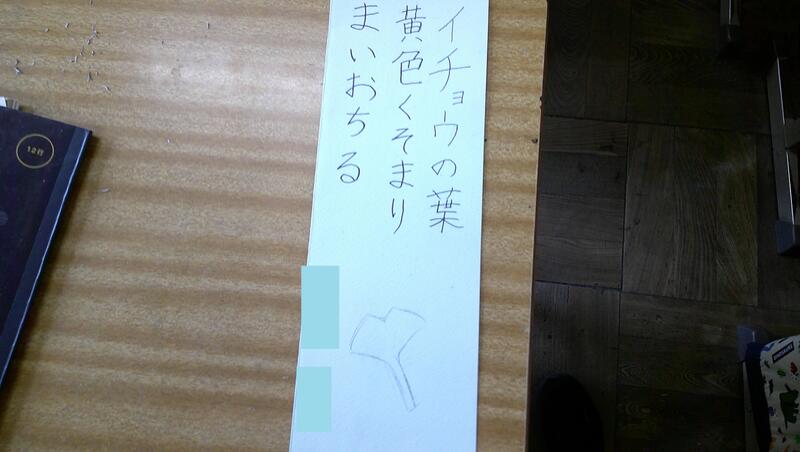 イチョウの葉
黄色くそまり
まいおちる
12行